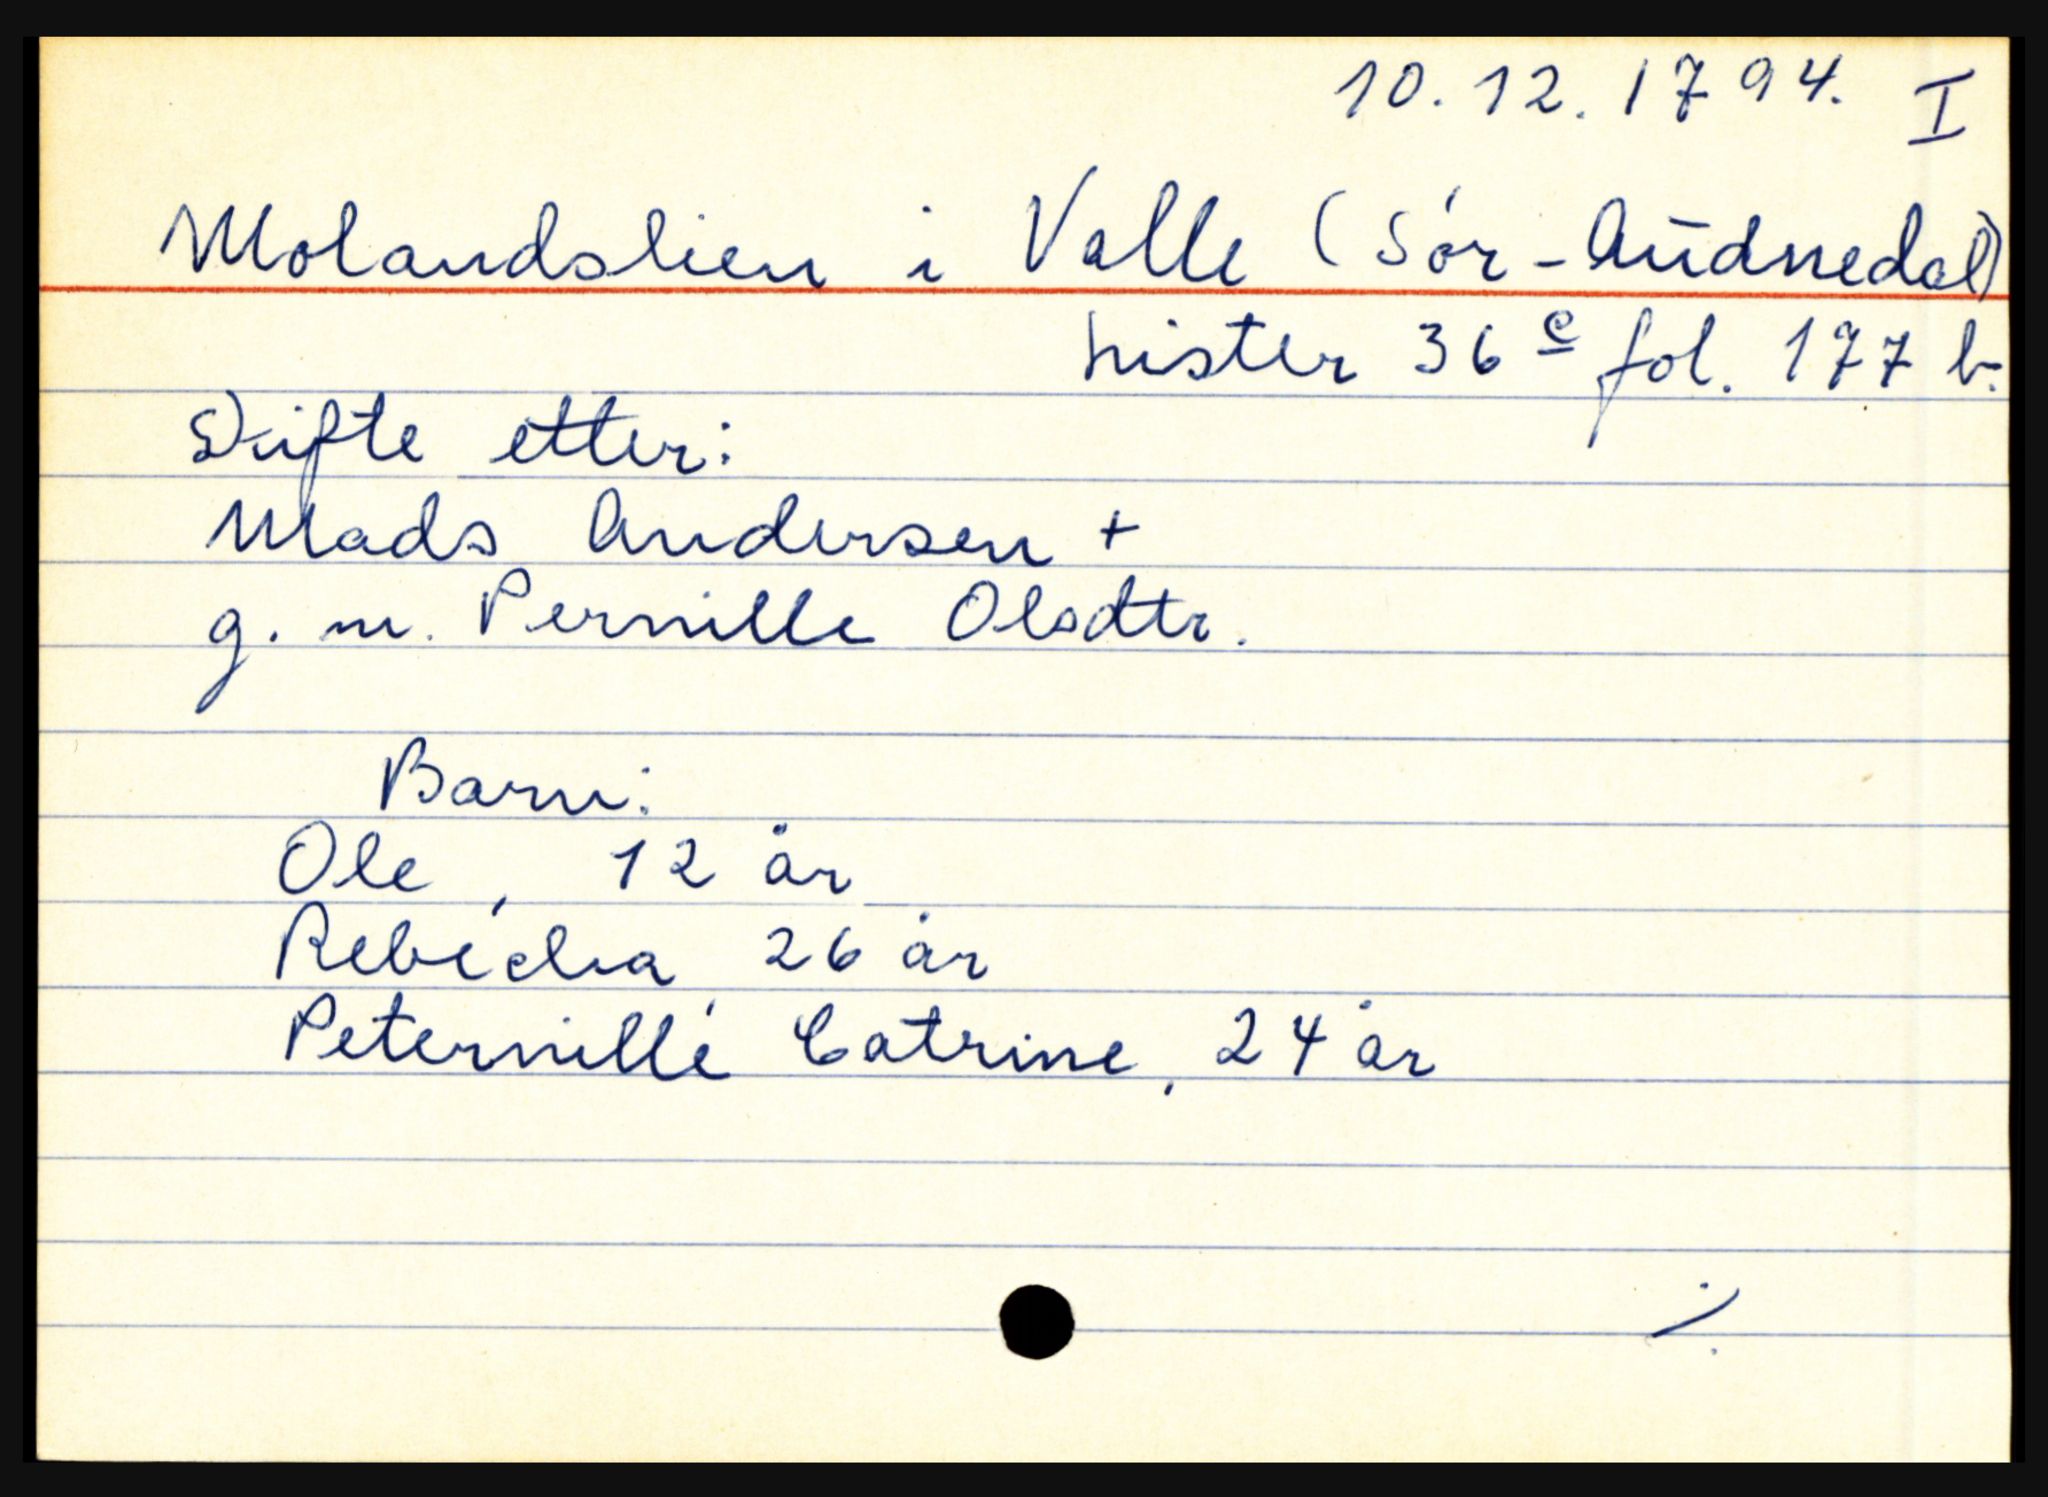 10.12.1794. I
Molandslien i Valle (Sór-Audnedal)
Lister 36 c fol. 177 b.
Skifte etter:
Mads Andersen +
g. m. Pernille Olsdtr.
Barn:
Ole, 12 år
Rebécha 26 år
Peternillé Catrine, 24 år
./.